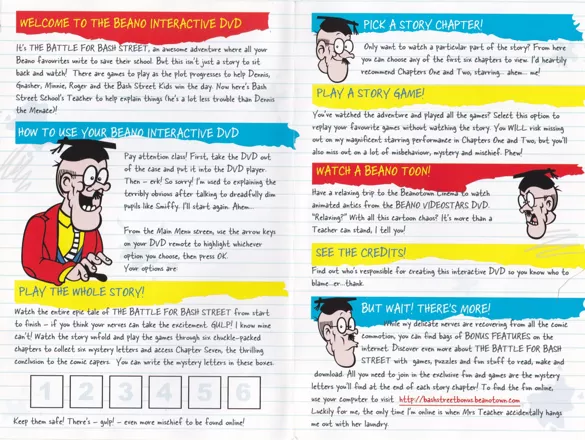 WELCOME TO THE BEANO INTERACTIVE DVD
It's THE BATTLE FOR BASH STREET, an awesome adventure where all your
Beano favourites unite to save their school. But this isn't just a story to sit
back and watch! There are games to play as the plot progresses to help Dennis,
Gnasher, Minnie, Roger and the Bash Street Kids win the day. Now here's Bash
Street School's Teacher to help explain things (he's a lot less trouble than Dennis
the Menace)!
HOW TO USE YOUR BEANO INTERACTIVE DVD
Pay attention class! First, take the DVD out
of the case and put it into the DVD player.
Then – erk! So sorry! I'm used to explaining the
terribly obvious after talking to dreadfully dim
pupils like Smiffy. I'll start again. Ahem...
From the Main Menu screen, use the arrow keys
on your DVD remote to highlight whichever
option you choose, then press OK.
Your options are
PLAY THE WHOLE STORY!
Watch the entire epic tale of THE BATTLE FOR BASH STREET from start
to finish – if you think your nerves can take the excitement. GULP! I know mine
can't! Watch the story unfold and play the games through six chuckle-packed
chapters to collect six mystery letters and access Chapter Seven, the thrilling
conclusion to the comic capers. You can write the mystery letters in these boxes.
1 2 3 4 5 6
Keep them safe! There's – gulp! – even more mischief to be found online!
PICK A STORY CHAPTER!
Only want to watch a particular part of the story? From here
you can choose any of the first six chapters to view. I'd heartily
recommend Chapters One and Two, starring... ahem... me!
PLAY A STORY GAME!
You've watched the adventure and played all the games? Select this option to
replay your favourite games without watching the story. You WILL risk missing
out on my magnificent starring performance in Chapters One and Two, but you'll
also miss out on a lot of misbehaviour, mystery and mischief. Phew!
WATCH A BEANO TOON!
Have a relaxing trip to the Beanotown Cinema to watch
animated antics from the BEANO VIDEOSTARS DVD.
"Relaxing?" With all this cartoon chaos? It's more than a
Teacher can stand, I tell you!
SEE THE CREDITS!
Find out who's responsible for creating this interactive DVD so you know who to
blame...er...thank.
BUT WAIT! THERE'S MORE!
While my delicate nerves are recovering from all the comic
commotion, you can find bags of BONUS FEATURES on the
internet. Discover even more about THE BATTLE FOR BASH
STREET with games, puzzles and fun stuff to read, make and
download. All you need to join in the exclusive fun and games are the mystery
letters you'll find at the end of each story chapter! To find the fun online,
use your computer to visit http://bashstreetbonus.beanotown.com
Luckily for me, the only time I'm online is when Mrs Teacher accidentally hangs
me out with her laundry.